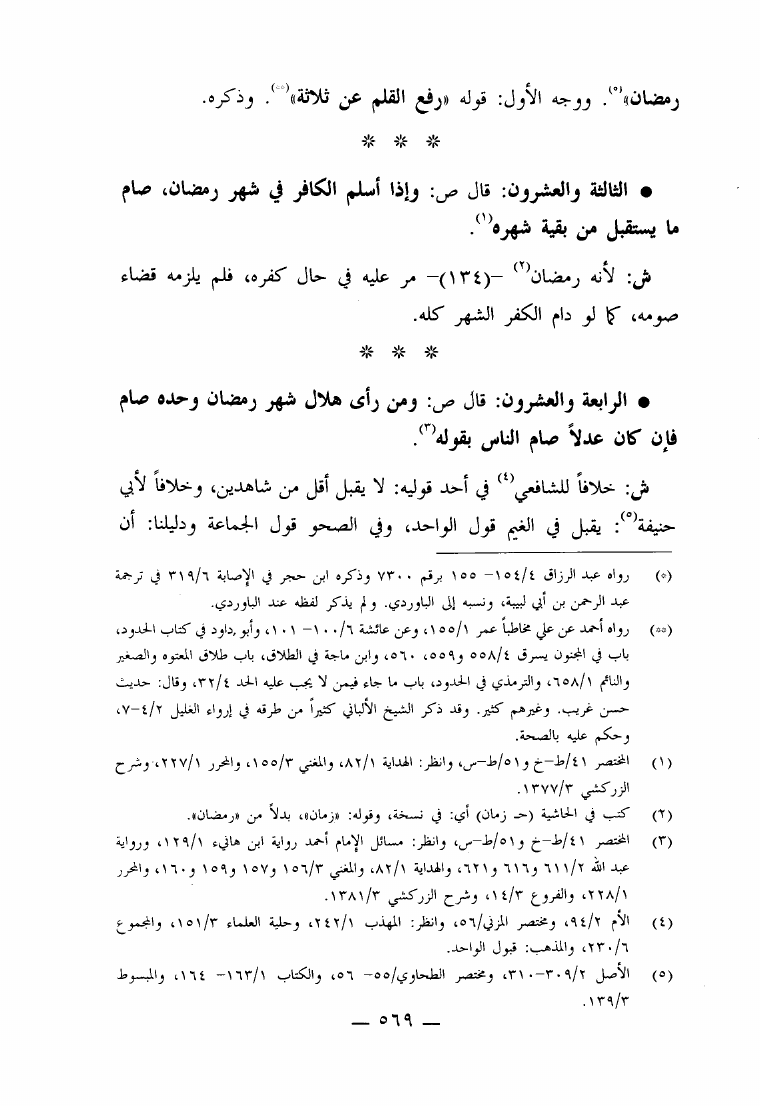 رمضان»(*). ووجه الأول: قوله «رفع القلم عن ثلاثة»(**). وذكره.
* * *
● الثالثة والعشرون: قال ص: وإذا أسلم الكافر في شهر رمضان، صام
ما يستقبل من بقية شهره(١).
ش: لأنه رمضان(٢) –(١٣٤)– مر عليه في حال كفره، فلم يلزمه قضاء
صومه، كما لو دام الكفر الشهر كله.
* * *
● الرابعة والعشرون: قال ص: ومن رأى هلال شهر رمضان وحده صام
فإن كان عدلاً صام الناس بقوله(٣).
ش: خلافاً للشافعي(٤) في أحد قوليه: لا يقبل أقل من شاهدين، وخلافاً لأبي
حنيفة(٥): يقبل في الغيم قول الواحد، وفي الصحو قول الجماعة ودليلنا: أن
(*) رواه عبد الرزاق ١٥٤/٤– ١٥٥ برقم ٧٣٠٠ وذكره ابن حجر في الإصابة ٣١٩/٦ في ترجمة
عبد الرحمن بن أبي لبيبة، ونسبه إلى الباوردي. ولم يذكر لفظه عند الباوردي.
(**) رواه أحمد عن علي مخاطباً عمر ١٥٥/١، وعن عائشة ١٠٠/٦– ١٠١، وأبو داود في كتاب الحدود،
باب في المجنون يسرق ٥٥٨/٤ و٥٥٩، ٥٦٠، وابن ماجة في الطلاق، باب طلاق المعتوه والصغير
والنائم ٦٥٨/١، والترمذي في الحدود، باب ما جاء فيمن لا يجب عليه الحد ٣٢/٤، وقال: حديث
حسن غريب. وغيرهم كثير. وقد ذكر الشيخ الألباني كثيراً من طرقه في إرواء الغليل ٤/٢–٧،
وحكم عليه بالصحة.
(١) المختصر ٤١/ط–خ و٥١/ط–س، وانظر: الهداية ٨٢/١، والمغني ١٥٥/٣، والمحرر ٢٢٧/١، وشرح
الزركشي ١٣٧٧/٣.
(٢) كتب في الحاشية (حـ زمان) أي: في نسخة، وقوله: «زمان»، بدلاً من «رمضان».
(٣) المختصر ٤١/ط–خ و٥١/ط–س، وانظر: مسائل الإمام أحمد رواية ابن هانيء ١٢٩/١، ورواية
عبد الله ٦١١/٢ و٦١٦ و٦٢١، والهداية ٨٢/١، والمغني ١٥٦/٣ و١٥٧ و١٥٩ و١٦٠، والمحرر
٢٢٨/١، والفروع ١٤/٣، وشرح الزركشي ١٣٨١/٣.
(٤) الأم ٩٤/٢، ومختصر المزني/٥٦، وانظر: المهذب ٢٤٢/١، وحلية العلماء ١٥١/٣، والمجموع
٢٣٠/٦، والمذهب: قبول الواحد.
(٥) الأصل ٣٠٩/٢–٣١٠، ومختصر الطحاوي/٥٥– ٥٦، والكتاب ١٦٣/١– ١٦٤، والمبسوط
١٣٩/٣.
— ٥٦٩ —